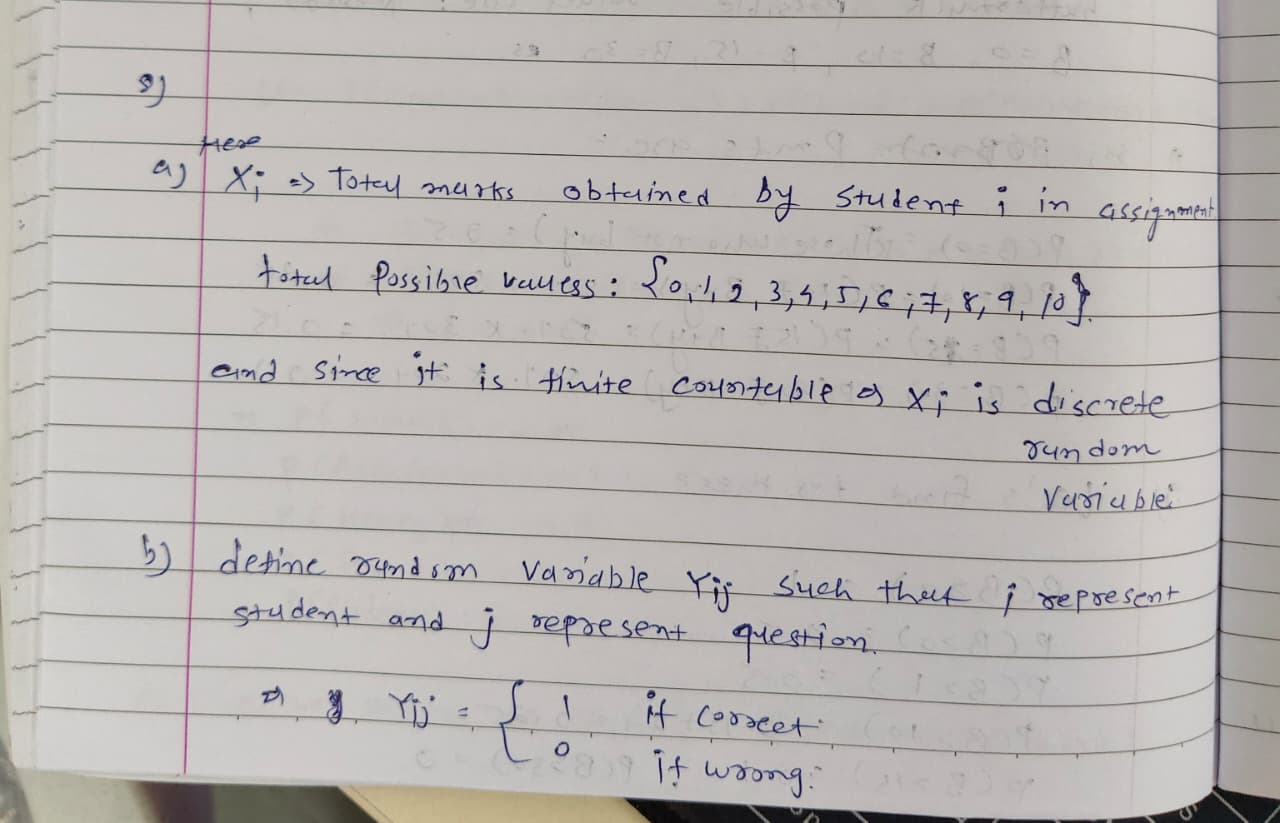 8)
Here
a) Xi => Total marks obtained by student i in assignment
total possible values: {0,1,2,3,4,5,6,7,8,9,10}.
and since it is finite countable Xi is discrete
random
variable.
b) define random variable Yij such that i represent
student and j represent question.
=> Yij = { 1 if correct
0 if wrong.